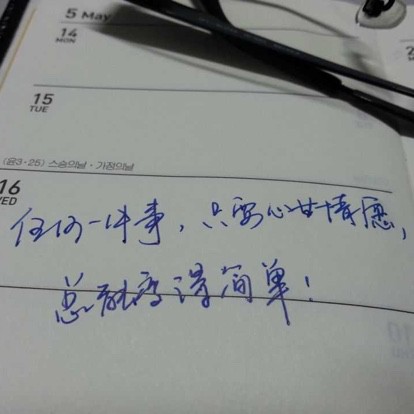 5 May
14
MON
15
TUE
(음3·25) 스승의날·가정의날
16
WED
任何一件事，只要心甘情愿，
总能变得简单！